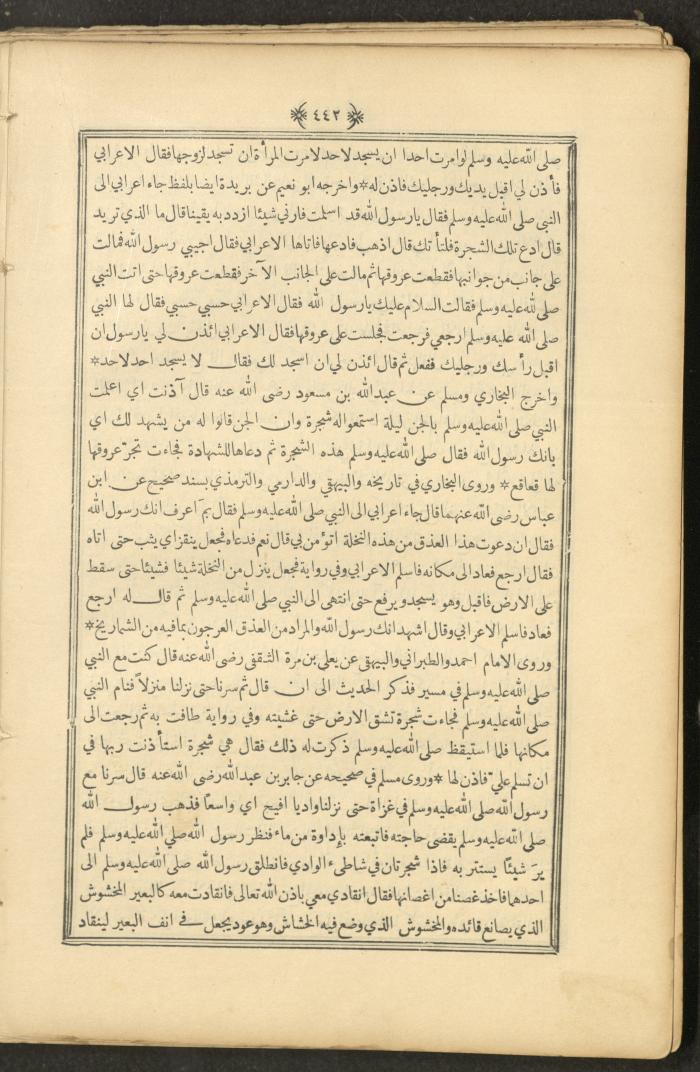 ٤٤٢
صلى الله عليه وسلم لو امرت احدا ان يسجد لاحد لامرت المرأة ان تسجد لزوجها فقال الاعرابي
فأذن لي اقبل يديك ورجليك فاذن له * واخرجه ابو نعيم عن بريدة ايضا بلفظ جاء اعرابي الى
النبي صلى الله عليه وسلم فقال يا رسول الله قد اسلمت فارني شيئا ازدد به يقينا قال ما الذي تريد
قال ادع تلك الشجرة فلتأتك قال اذهب فادعها فاتاها الاعرابي فقال اجيبي رسول الله فمالت
على جانب من جوانبها فقطعت عروقها ثم مالت على الجانب الآخر فقطعت عروقها حتى اتت النبي
صلى الله عليه وسلم فقالت السلام عليك يا رسول الله فقال الاعرابي حسبي حسبي فقال لها النبي
صلى الله عليه وسلم ارجعي فرجعت فجلست على عروقها فقال الاعرابي ائذن لي يا رسول ان
اقبل رأسك ورجليك ففعل ثم قال ائذن لي ان اسجد لك فقال لا يسجد احد لاحد *
واخرج البخاري ومسلم عن عبدالله بن مسعود رضى الله عنه قال آذنت اي اعلمت
النبي صلى الله عليه وسلم بالجن ليلة استمعوا له شجرة وان الجن قالوا له من يشهد لك اي
بانك رسول الله فقال صلى الله عليه وسلم هذه الشجرة ثم دعاها للشهادة فجاءت تجرّ عروقها
لها قعاقع * وروى البخاري في تاريخه والبيهقي والدارمي والترمذي بسند صحيح عن ابن
عباس رضى الله عنهما قال جاء اعرابي الى النبي صلى الله عليه وسلم فقال بمَ اعرف انك رسول الله
فقال ان دعوت هذا العذق من هذه النخلة اتؤمن بي قال نعم فدعاه فجعل ينقز اي يثب حتى اتاه
فقال ارجع فعاد الى مكانه فاسلم الاعرابي وفي رواية فجعل ينزل من النخلة شيئا فشيئا حتى سقط
على الارض فاقبل وهو يسجد ويرفع حتى انتهى الى النبي صلى الله عليه وسلم ثم قال له ارجع
فعاد فاسلم الاعرابي وقال اشهد انك رسول الله والمراد من العذق العرجون بما فيه من الشماريخ *
وروى الامام احمد والطبراني والبيهقي عن يعلى بن مرة الثقفى رضى الله عنه قال كنت مع النبي
صلى الله عليه وسلم في مسير فذكر الحديث الى ان قال ثم سرنا حتى نزلنا منزلاً فنام النبي
صلى الله عليه وسلم فجاءت شجرة تشق الارض حتى غشيته وفي رواية طافت به ثم رجعت الى
مكانها فلما استيقظ صلى الله عليه وسلم ذكرت له ذلك فقال هي شجرة استأذنت ربها في
ان تسلم عليّ فاذن لها * وروى مسلم في صحيحه عن جابر بن عبد الله رضى الله عنه قال سرنا مع
رسول الله صلى الله عليه وسلم في غزاة حتى نزلنا واديا افيح اي واسعاً فذهب رسول الله
صلى الله عليه وسلم يقضى حاجته فاتبعته بإداوة من ماء فنظر رسول الله صلى الله عليه وسلم فلم
يرَ شيئًا يستتر به فاذا شجرتان في شاطىء الوادي فانطلق رسول الله صلى الله عليه وسلم الى
احدهما فاخذ غصنا من اغصانها فقال انقادي معي باذن الله تعالى فانقادت معه كالبعير المخشوش
الذي يصانع قائده والمخشوش الذي وضع فيه الخشاش وهو عود يجعل في انف البعير لينقاد